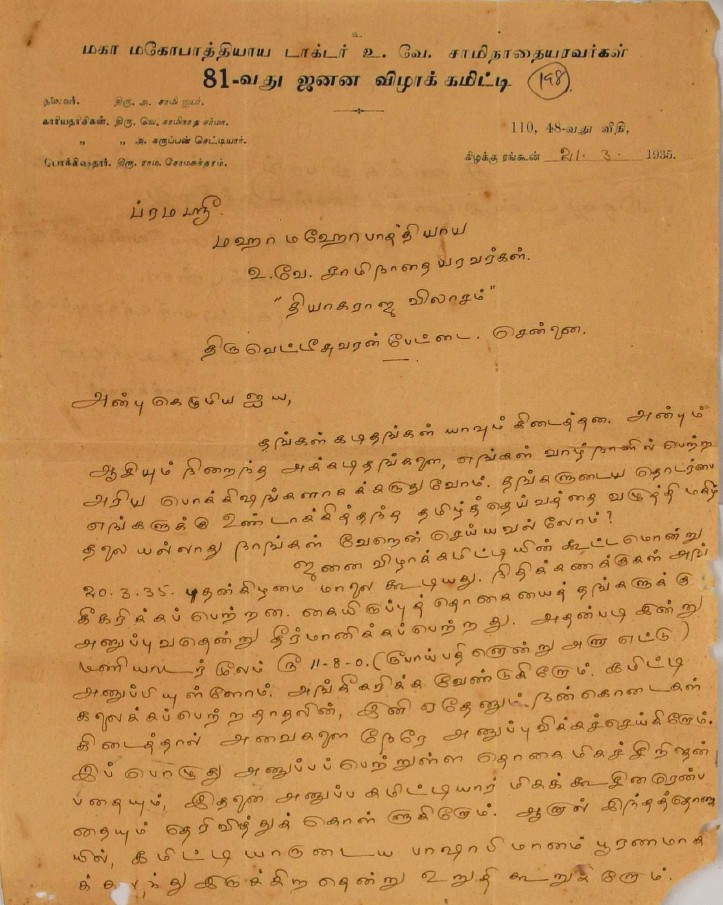 மகா மகோபாத்தியாய டாக்டர் உ. வே. சாமிநாதையரவர்கள்
81-வது ஜனன விழாக் கமிட்டி (198)
தலைவர். திரு. அ. சாமி ஐயர்.
காரியதரிசிகள். திரு. வெ. சாமிநாத சர்மா.
„ „ அ. கருப்பன் செட்டியார்.
110, 48-வது வீதி,
பொக்கிஷதார். திரு. ராம. சோமசுந்தரம்.
கிழக்கு ரங்கூன் 21. 3. 1935.
ப்ரமஸ்ரீ
மஹா மஹோபாத்தியாய
உ.வே. சாமிநாதையரவர்கள்.
"தியாகராஜ விலாசம்"
திருவெட்டீசுவரன் பேட்டை. சென்னை.
அன்பு கெழுமிய ஐய,
தங்கள் கடிதங்கள் யாவும் கிடைத்தன. அன்பும்
ஆசியும் நிறைந்த அக்கடிதங்களை, எங்கள் வாழ்நாளில் பெற்ற
அரிய பொக்கிஷங்களாகக் கருதுவோம். தங்களுடைய தொடர்பை
எங்களுக்கு உண்டாக்கித்தந்த தமிழ்த்தெய்வத்தை வழுத்தி மகிழ்
தலை யல்லாது நாங்கள் வேறென் செய்யவல்லோம்?
ஜனன விழாக்கமிட்டியின் கூட்டமொன்று
20.3.35. புதன்கிழமை மாலை கூடியது. நிதிக்கணக்குகள் அங்
கீகரிக்கப் பெற்றன. கையிருப்புத் தொகையைத் தங்களுக்கு
அனுப்புவதென்று தீர்மானிக்கப்பெற்றது. அதன்படி இன்று
மணியாடர் மூலம் ரூ 11-8-0. (ரூபாய் பதினொன்று அணா எட்டு)
அனுப்பியுள்ளோம். அங்கீகரிக்க வேண்டுகிறோம். கமிட்டி
கலைக்கப்பெற்றதாதலின், இனி ஏதேனும் நன்கொடைகள்
கிடைத்தால் அவைகளை நேரே அனுப்புவிக்கச்செய்கிறோம்.
இப்பொழுது அனுப்பப் பெற்றுள்ள தொகை மிகச் சிறிதென்
பதையும், இதனை அனுப்ப கமிட்டியார் மிகக் கூசினரென்ப
தையும் தெரிவித்துக் கொள்ளுகிறோம். ஆனால் இந்தத்தொகை
யில், கமிட்டியாருடைய பாஷாபிமானம் பூரணமாக
க் கலந்து இருக்கிறதென்று உறுதி கூறுகிறோம்.